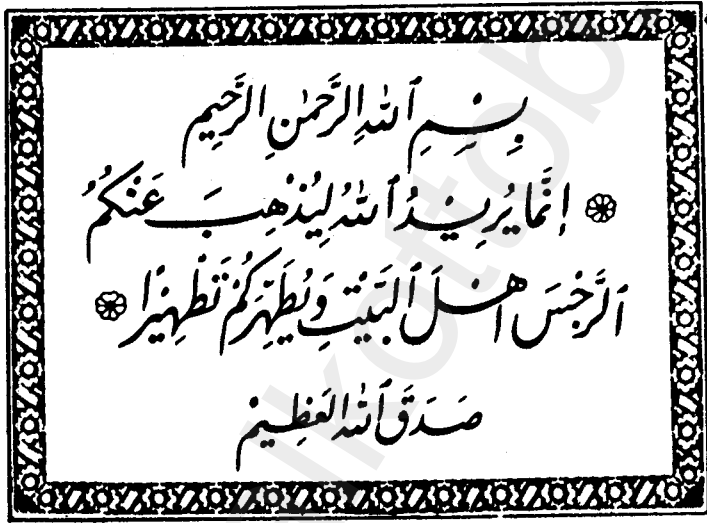 بِسْمِ ٱللهِ الرَّحْمٰنِ الرَّحِيمِ
إِنَّمَا يُرِيدُ ٱللهُ لِيُذْهِبَ عَنْكُمُ
ٱلرِّجْسَ اَهْلَ ٱلْبَيْتِ وَيُطَهِّرَكُمْ تَطْهِيرًا
صَدَقَ ٱللهُ العَظِيمْ